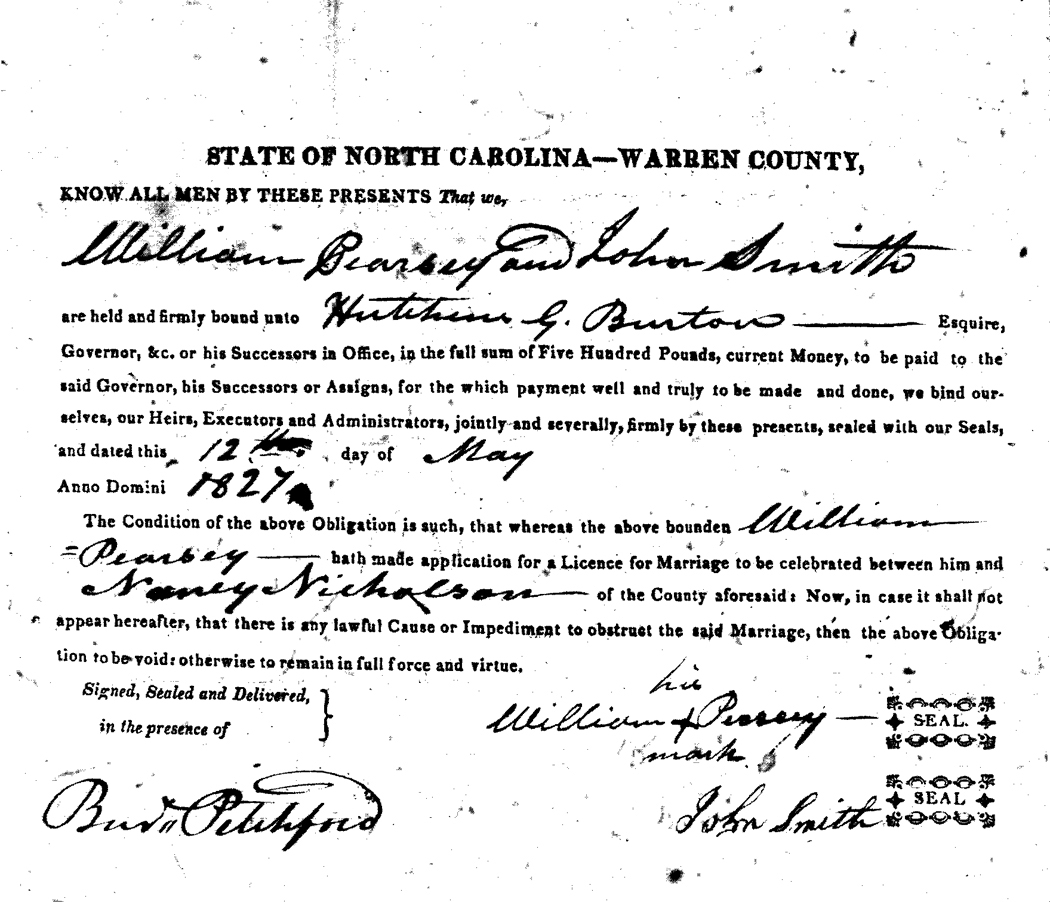 STATE OF NORTH CAROLINA—WARREN COUNTY,
KNOW ALL MEN BY THESE PRESENTS That we,
William Pearsey and John Smith
are held and firmly bound unto Hutchins G. Burton Esquire,
Governor, &c. or his Successors in Office, in the full sum of Five Hundred Pounds, current Money, to be paid to the
said Governor, his Successors or Assigns, for the which payment well and truly to be made and done, we bind our-
selves, our Heirs, Executors and Administrators, jointly and severally, firmly by these presents, sealed with our Seals,
and dated this 12th day of May
Anno Domini 1827
The Condition of the above Obligation is such, that whereas the above bounden William
Pearsey — hath made application for a Licence for Marriage to be celebrated between him and
Nancy Nicholson — of the County aforesaid: Now, in case it shall not
appear hereafter, that there is any lawful Cause or Impediment to obstruct the said Marriage, then the above Obliga-
tion to be void: otherwise to remain in full force and virtue.
Signed, Sealed and Delivered,
in the presence of
his
William + Pearsey — SEAL.
mark
Pitchford
John Smith SEAL